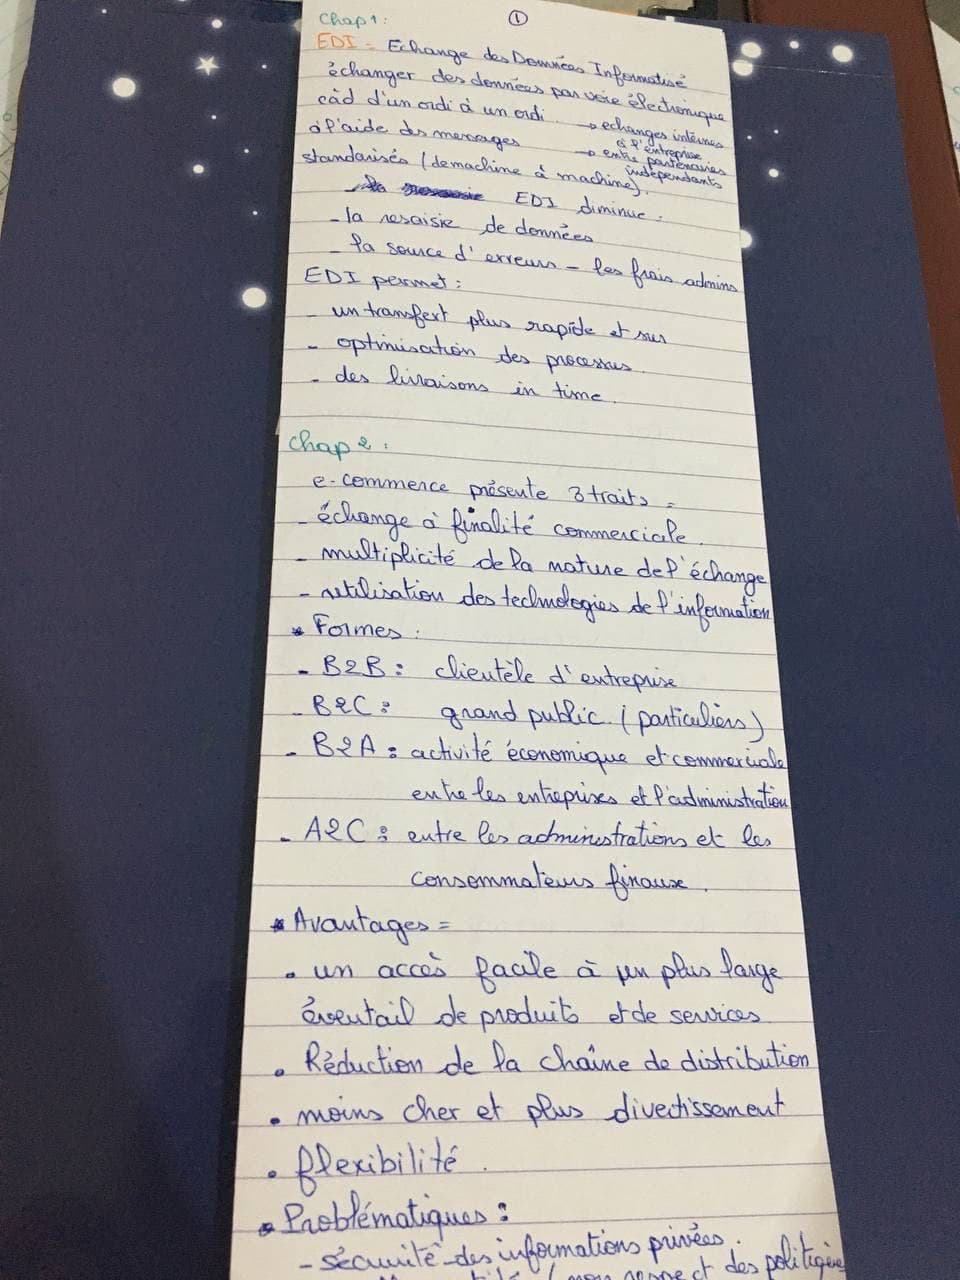 ①
Chap 1:
EDI = Echange des Données Informatisé
échanger des données par voie électronique
càd d'un ordi à un ordi. → echanges internes
à l'entreprise
à l'aide des messages → entre partenaires
indépendants
standarisés (de machine à machine).
EDI diminue:
- la resaisie de données
- la source d'erreurs - les frais admins
EDI permet:
- un transfert plus rapide et sur
- optimisation des processus.
- des livraisons in time.
Chap 2:
e-commerce présente 3 traits =
- échange à finalité commerciale.
- multiplicité de la nature de l'échange
- utilisation des technologies de l'information
* Formes:
- B2B: clientèle d'entreprise
- B2C: grand public (particuliers)
- B2A: activité économique et commerciale
entre les entreprises et l'administration
- A2C: entre les administrations et les
consommateurs finaux.
* Avantages =
• un accès facile à un plus large
éventail de produits et de services
• Réduction de la chaîne de distribution
• moins cher et plus divertissement
• flexibilité.
* Problématiques:
- sécurité des informations privées.
(non respect des politiques